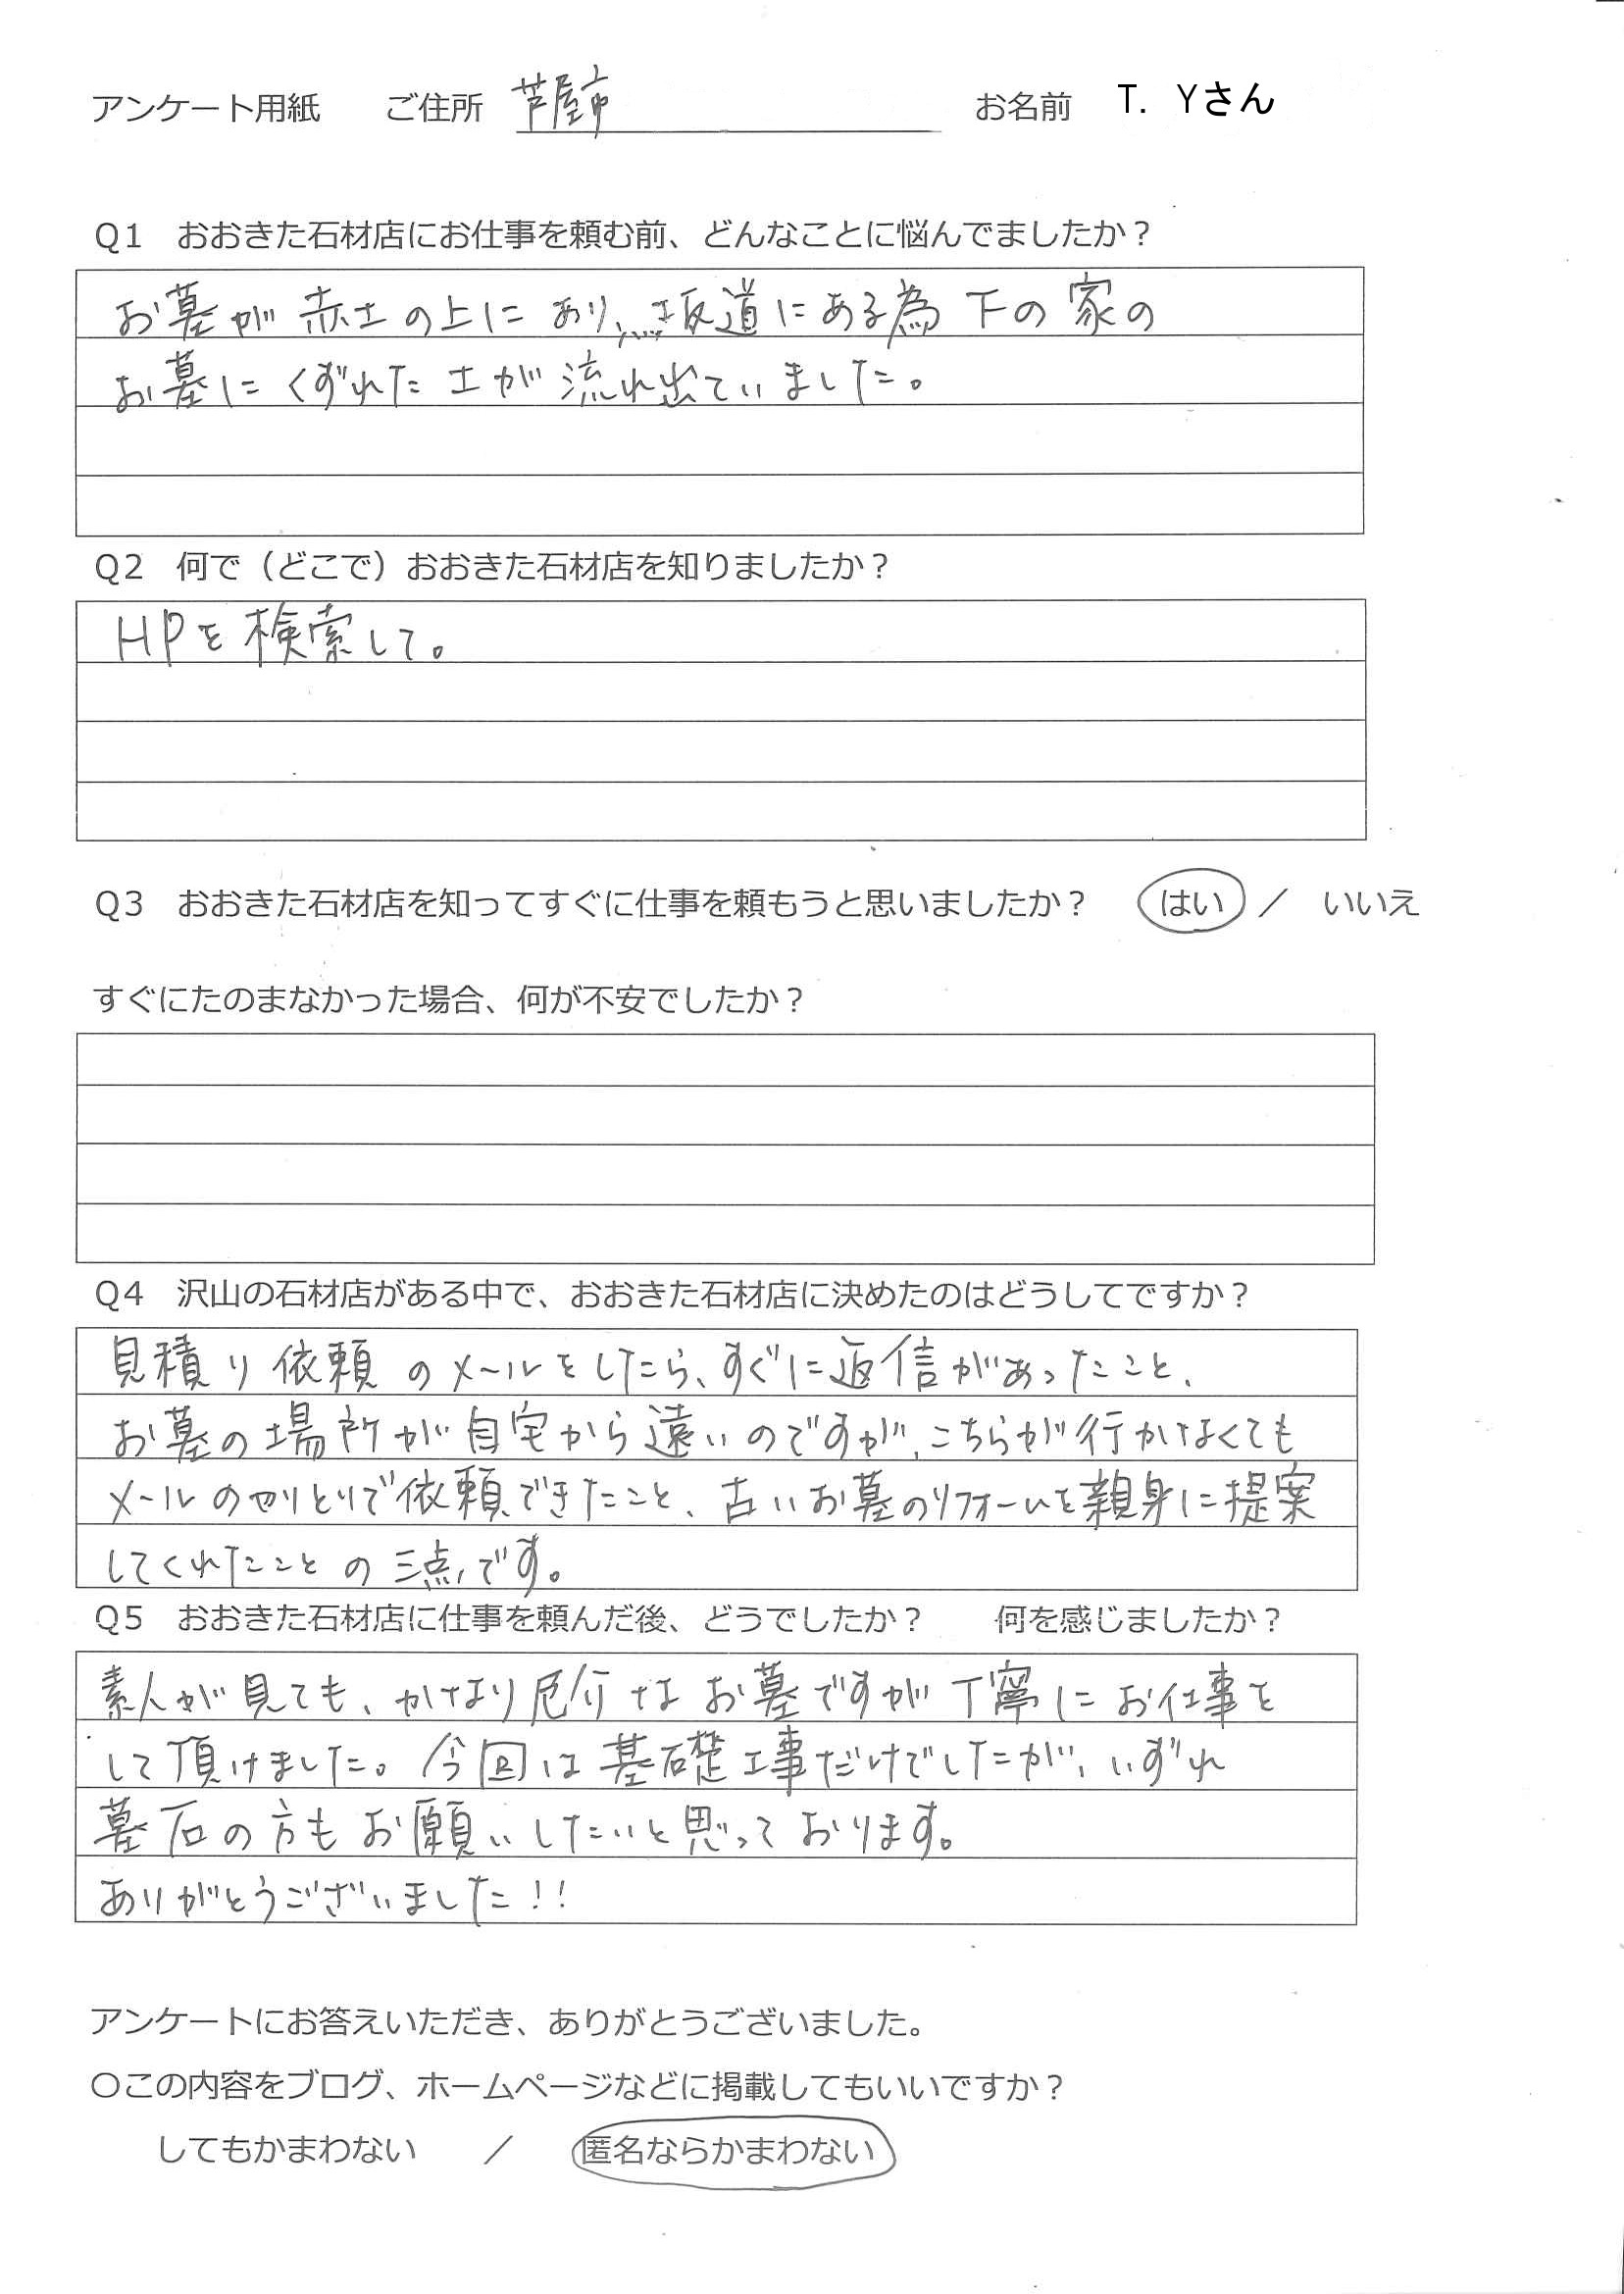 アンケート用紙　ご住所　芦屋市　お名前　T. Yさん
Q1　おおきた石材店にお仕事を頼む前、どんなことに悩んでましたか？
お墓が赤土の上にあり、坂道にある為下の家の
お墓にくずれた土が流れ出ていました。
Q2　何で（どこで）おおきた石材店を知りましたか？
HPを検索して。
Q3　おおきた石材店を知ってすぐに仕事を頼もうと思いましたか？　はい ／ いいえ
すぐにたのまなかった場合、何が不安でしたか？
Q4　沢山の石材店がある中で、おおきた石材店に決めたのはどうしてですか？
見積り依頼のメールをしたら、すぐに返信があったこと、
お墓の場所が自宅から遠いのですが、こちらが行かなくても
メールのやりとりで依頼できたこと、古いお墓のリフォームを親身に提案
してくれたことの三点です。
Q5　おおきた石材店に仕事を頼んだ後、どうでしたか？　何を感じましたか？
素人が見ても、かなり厄介なお墓ですが丁寧にお仕事を
して頂けました。今回は基礎工事だけでしたが、いずれ
墓石の方もお願いしたいと思っております。
ありがとうございました!!
アンケートにお答えいただき、ありがとうございました。
〇この内容をブログ、ホームページなどに掲載してもいいですか？
してもかまわない　／　匿名ならかまわない